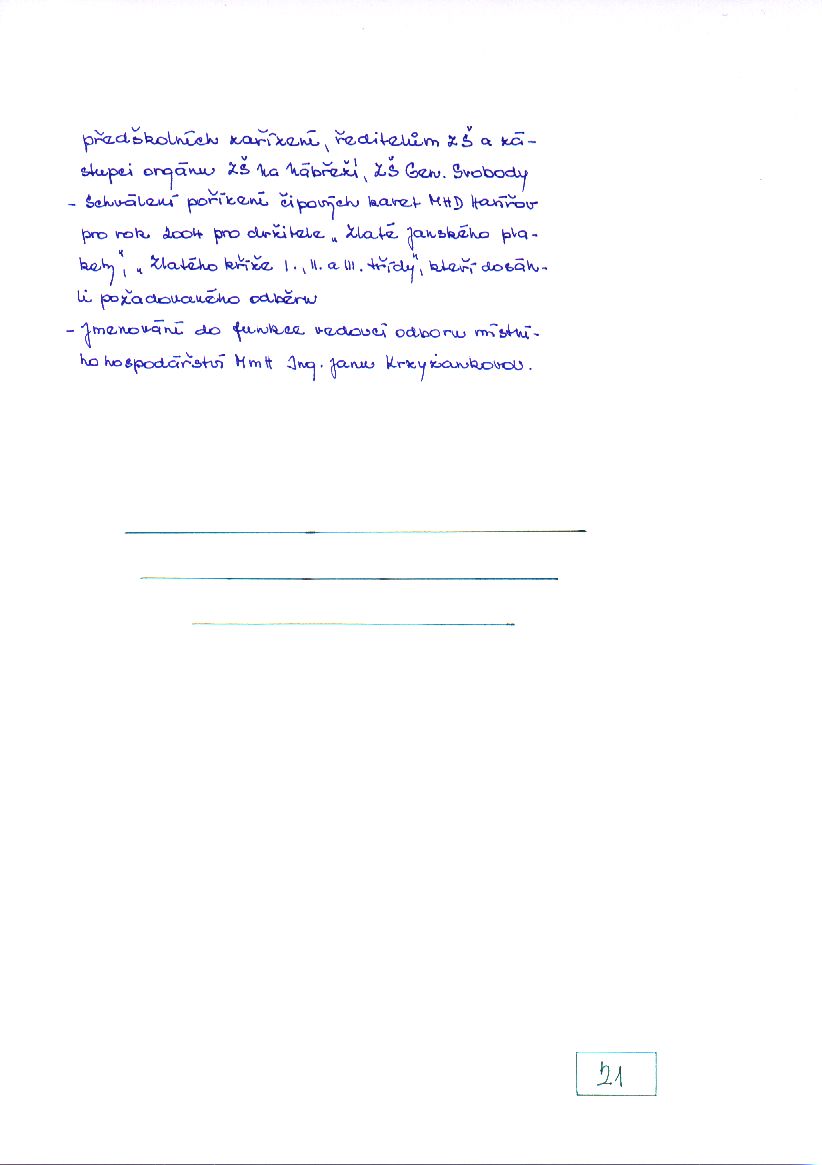 předškolních zařízení, ředitelům ZŠ a zá-
stupci orgánu ZŠ Na Nábřeží, ZŠ Gen. Svobody
- Schválení pořízení čipových karet MHD Havířov
pro rok 2004 pro držitele „Zlaté Janského pla-
kety", „Zlatého kříže I., II. a III. třídy", kteří dosáh-
li požadovaného odběru
- Jmenování do funkce vedoucí odboru místní-
ho hospodářství MmH Ing. Janu Krzyżankovou.
21